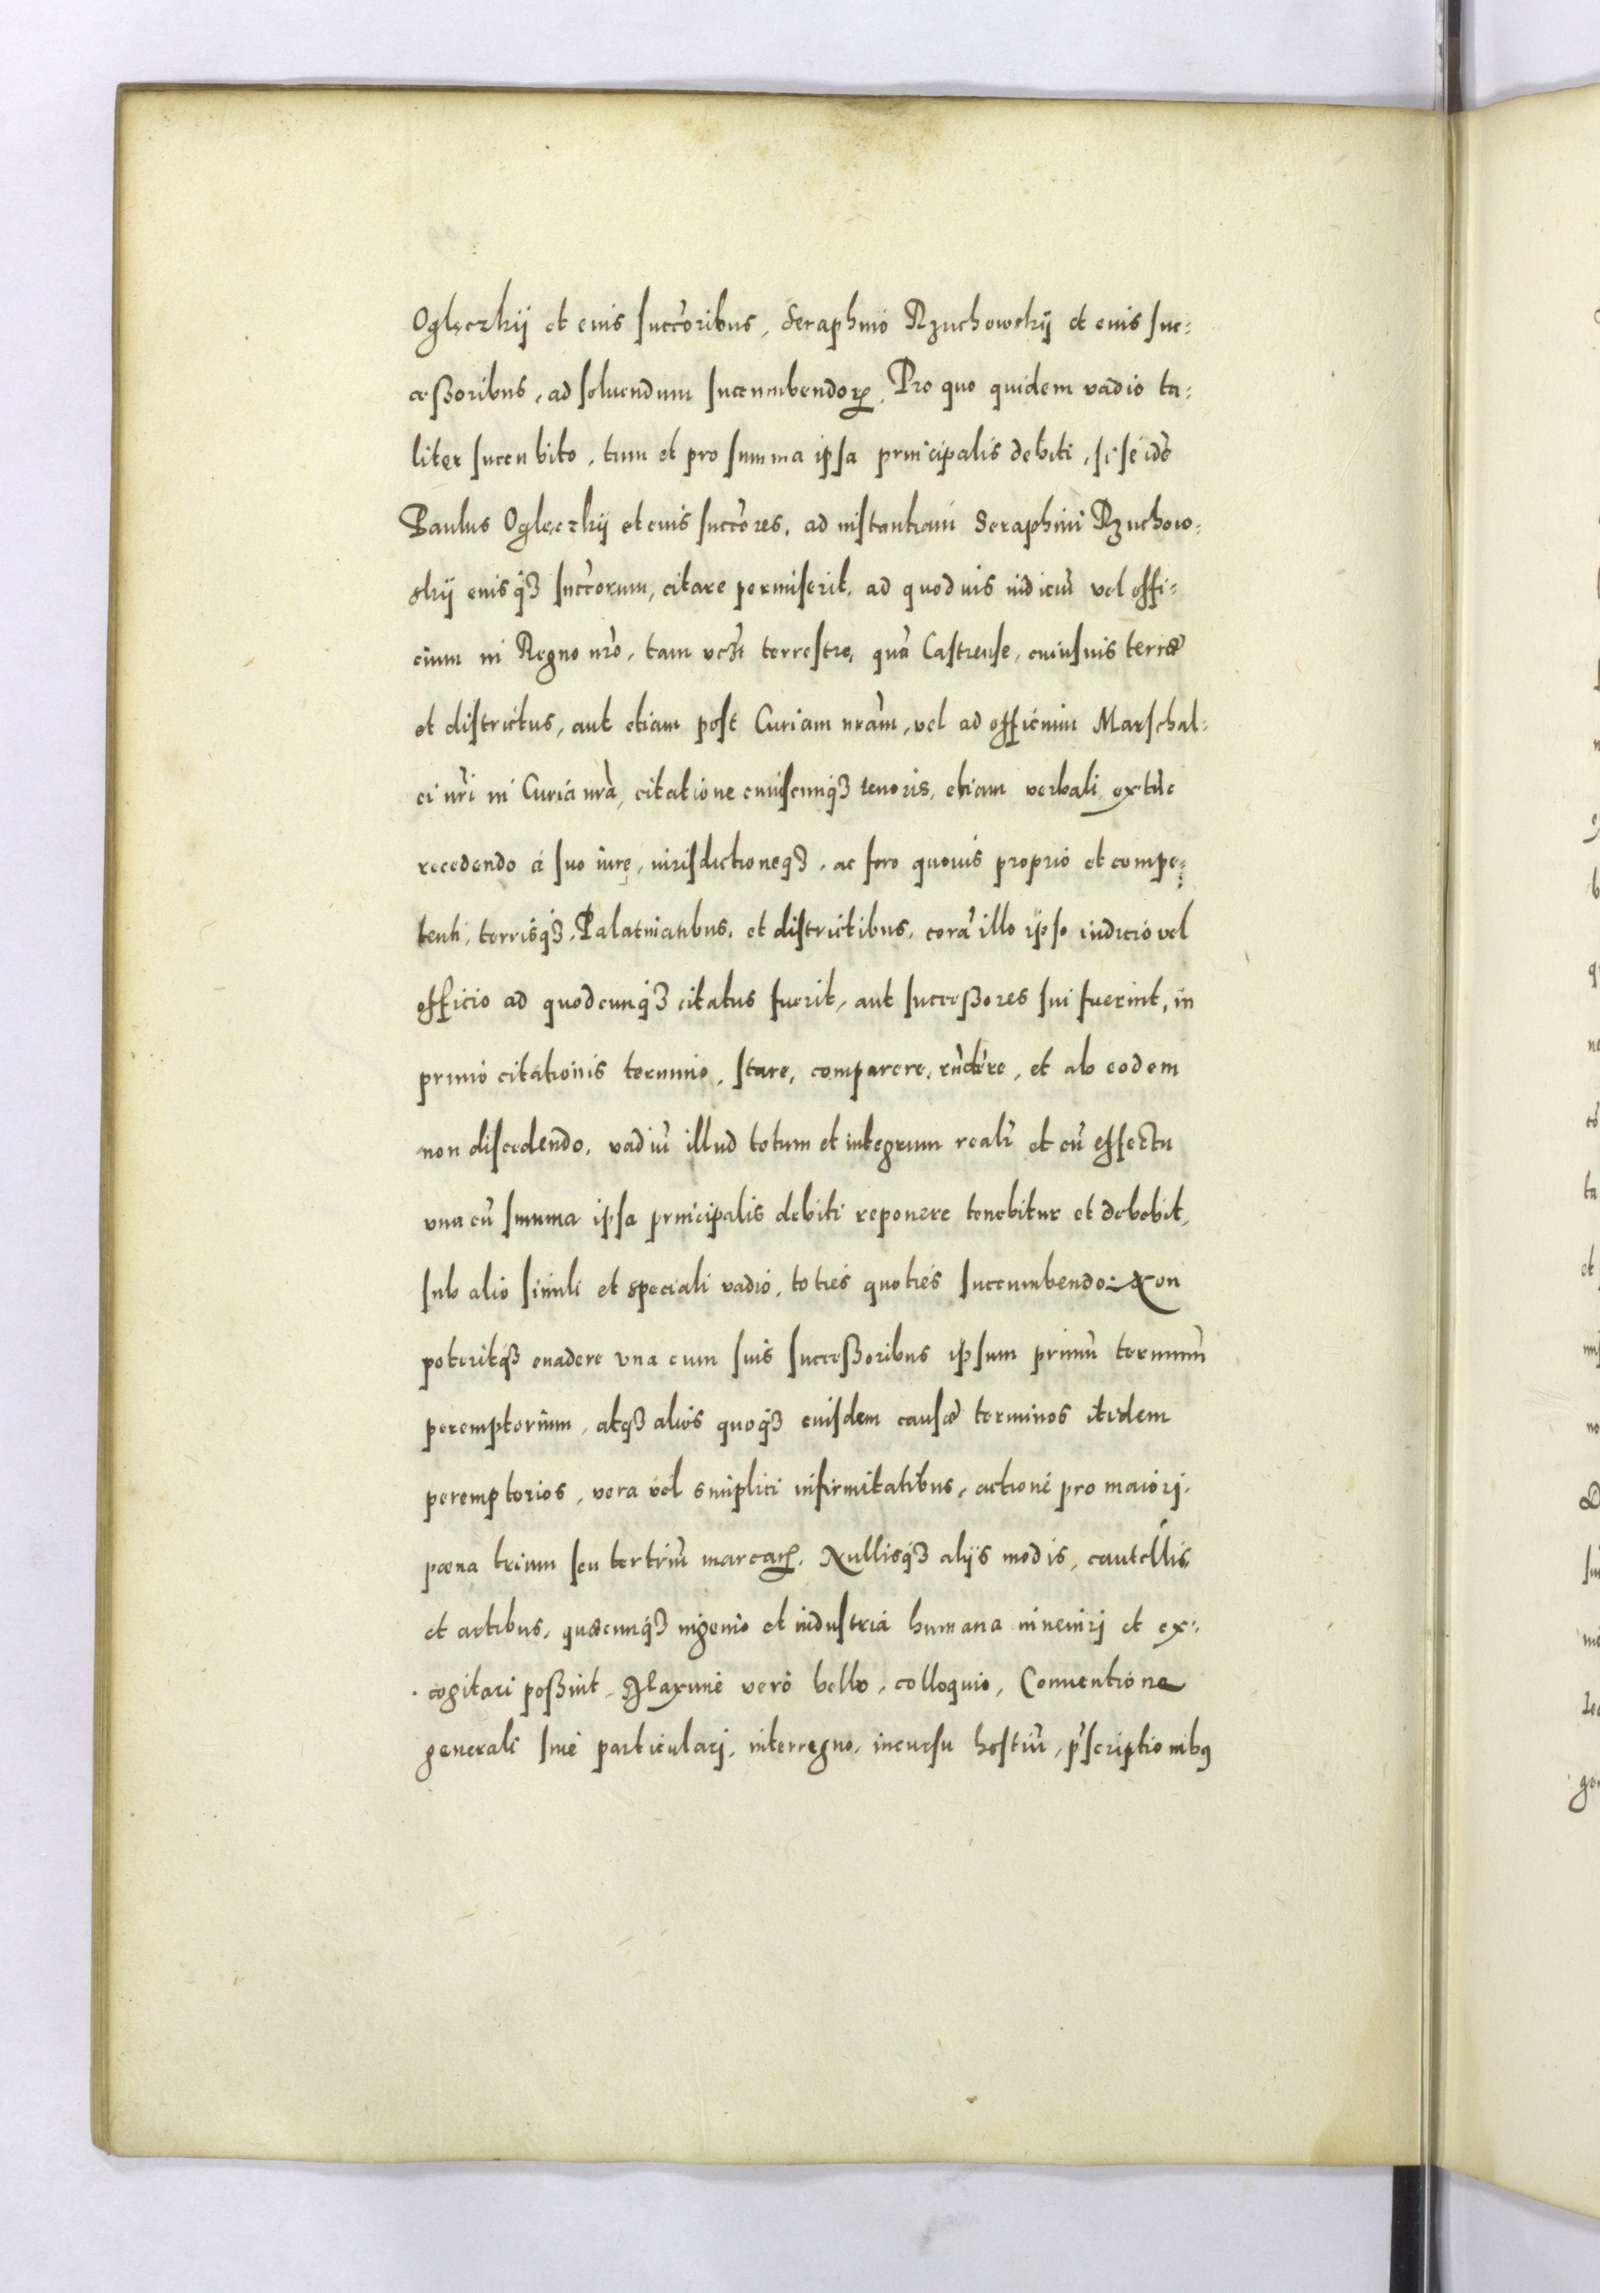 Oględzkÿ et eius succoribus, Seraphino Rzuchowskÿ et eius suc=
ceßoribus, ad soluendum succumbendoꝝ. Pro quo quidem vadio ta=
liter succubito, tum et pro summa ipsa principalis debiti, si se idē
Paulus Oględzkÿ et eius succores, ad instantiam Seraphini Rzuchow=
skÿ eiusqꝫ succorum, citare permiserit, ad quoduis iudiciū vel offi=
cium in Regno nrō, tam terrestre, quā Castrense, cuiusuis terræ
et districtus, aut etiam post Curiam nrām, vel ad officium Marschal=
ci nrī in Curia nrā, citatione cuiuscunqꝫ tenoris, etiam verbali extūc
recedendo à suo iure, iurisdictioneqꝫ, ac foro quouis proprio et compe=
tenti, terrisqꝫ, Palatinatibus, et districtibus, corā illo ipso iudicio vel
officio ad quodcunqꝫ citatus fuerit, aut succeßores sui fuerint, in
primo citationis termino, stare, comparere, rn̄dēre, et ab eodem
non discedendo, vadiū illud totum et integrum realr̄ et cū effectu
vna cū summa ipsa principalis debiti reponere tenebitur et debebit,
sub alio simili et speciali vadio, toties quoties succumbendo: Non
poteritqꝫ euadere vna cum suis succeßoribus ipsum primū terminū
peremptorium, atqꝫ alios quoqꝫ eiusdem causæ terminos itidem
peremptorios, vera vel simplici infirmitatibus, actione pro maiori,
pœna trium seu tertriū marcarꝝ. Nullisqꝫ alijs modis, cautellis
et artibus, quæcunqꝫ ingenio et industria humana inueniri et ex=
cogitari poßint, Maxime vero bello, colloquio, Conuentione
generali siue particulari, interregno, incursu hostiū, p̄scriptionibꝰ